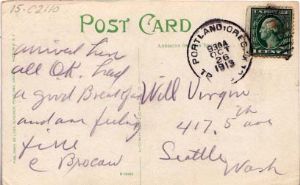 15-C2110
POST CARD
PORTLAND, OREG.
OCT
26
1913
arrival here
all OK. had
a good Breakfast
and am feeling
fine
C Brocaw
Will Virgin
417.5 ave
Seattle
Wash